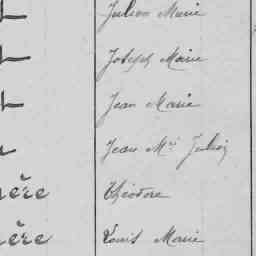 Julien Marie
Joseph Marie
Jean Marie
Jean Mie Julien
ère Théodore
ère Louis Marie